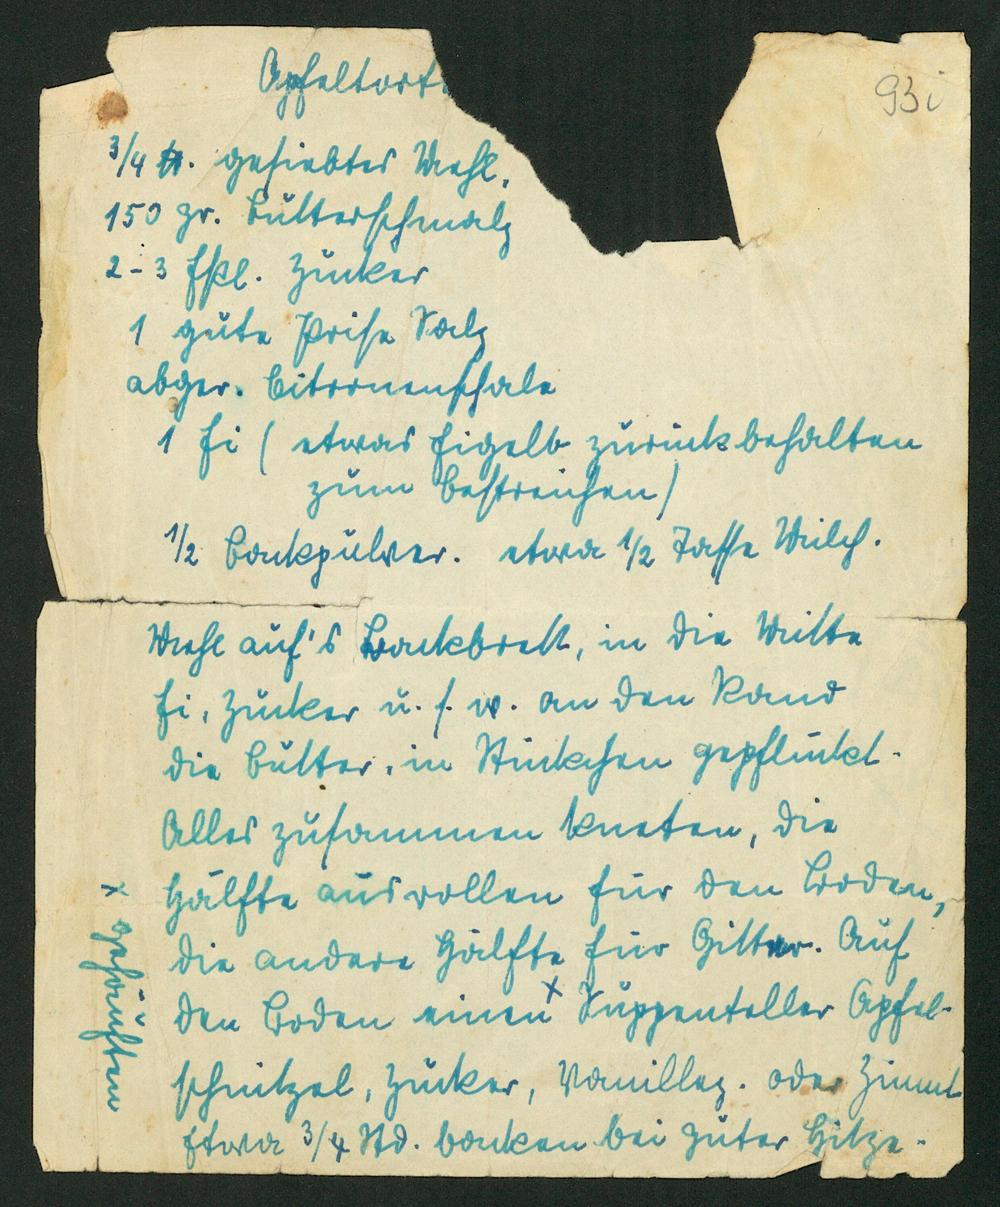 Apfeltort
93i
3/4 ℔. gesiebtes Mehl,
150 gr. Butterschmalz
2-3 Eßl. Zucker
1 gute Prise Salz
abger. Citronenschale
1 Ei ( etwas Eigelb zurückbehalten
zum Bestreichen )
1/2 Backpulver. etwa 1/2 Tasse Milch.
Mehl auf's Backbrett, in die Mitte
Ei, Zucker u. s. w. an den Rand
die Butter, in Stückchen gepflückt.
Alles zusammen kneten, die
Hälfte ausrollen für den Boden,
die andere Hälfte für Gitter. Auf
den Boden einen x Suppenteller Apfel-
schnitzel, Zucker, Vanillez. oder Zimmt
Etwa 3/4 Std. backen bei guter Hitze.
x gehäuften